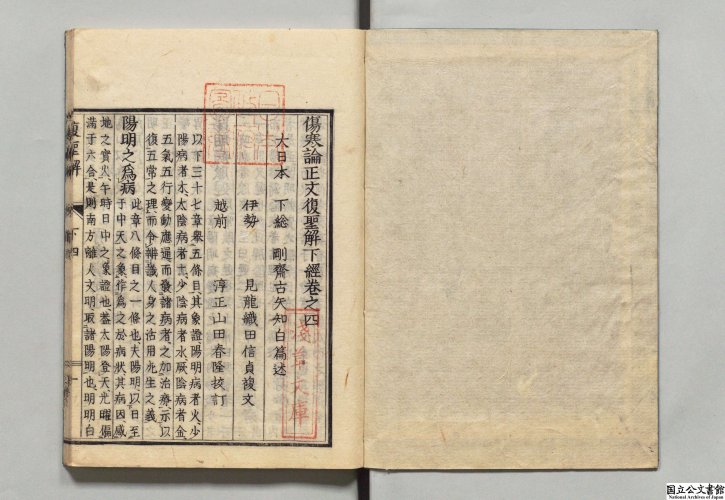 傷寒論正文復聖解下經卷之四
大日本 下総 剛齋古矢知白篇述
伊勢 見龍織田信貞謖文
越前 淳正山田春隆挍訂
以下三十七章舉五條目其象證陽明病者火少
陽病者木太陰病者土少陰病者水厥陰病者金
五氣五行變動應運而發諸病者之加治療示以
復五常之理而令辨識人身之活用死生之義
陽明之爲病 此章八條目之一條也夫陽明以日至
于中天之象作爲之於病狀其病因感
地之實火午時日中之象證也蓋太陽登天光曜偏
滿于六合是則南方離人文明取諸陽明也明明白
復聖解 下四 一
淺草文庫
国立公文書館
National Archives of Japan